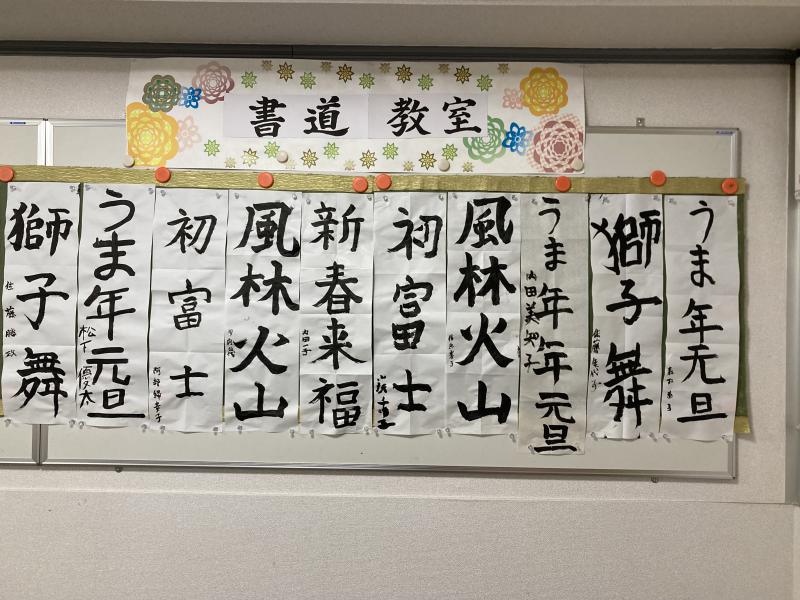 書道 教室
うま年元旦
獅子舞
佐藤
うま年年元旦
内田美知子
風林火山
初富士
新春来福
内田一子
風林火山
初富士
うま年元旦
松下優太
獅子舞
佐藤